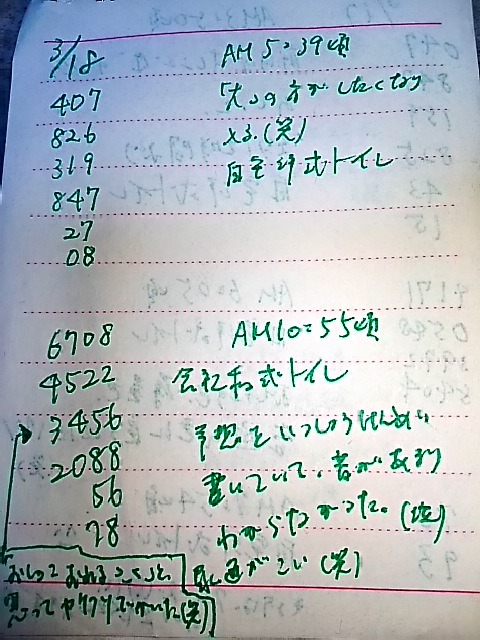 3/18
AM 5:39頃
407
「大」の方がしたくなり
826
ます。(笑)
319
自宅洋式トイレ
847
27
08
6708
AM10:55頃
4522
会社和式トイレ
3456
予想をいっしょうけんめい
2088
書いていて、音があまり
56
わからなかった。(泣)
78
尿道がこい(笑)
思ってヤケクソでかいた(笑)